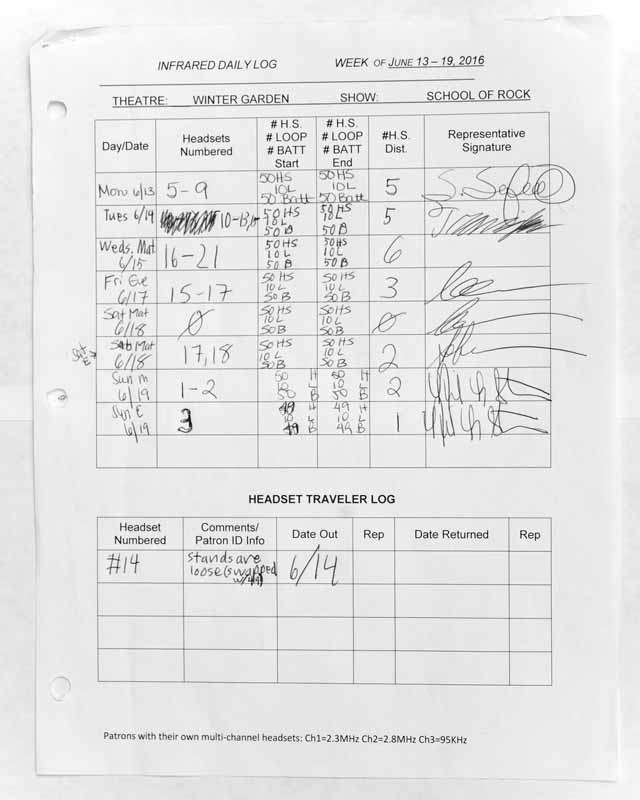 INFRARED DAILY LOG WEEK OF JUNE 13 – 19, 2016
THEATRE: WINTER GARDEN SHOW: SCHOOL OF ROCK
Day/Date
Headsets
Numbered
# H.S.
# LOOP
# BATT
Start
# H.S.
# LOOP
# BATT
End
#H.S.
Dist.
Representative
Signature
Mon 6/13 5-9
50HS
10L
50 Batt
50HS
10L
50 Batt
5
Tues 6/14
50HS
10L
50B
50HS
10L
50B
5
Weds. Mat
6/15
16-21
50HS
10L
50B
50HS
10L
50B
6
Fri Eve
6/17
15-17
50HS
10L
50B
50HS
10L
50B
3
Sat Mat
6/18
Ø
50HS
10L
50B
50HS
10L
50B
Ø
Sat
E
Sat Mat
6/18
17,18
50HS
10L
50B
50HS
10L
50B
2
Sun m
6/19
1-2
50 H
10 L
50 B
50 H
10 L
50 B
2
Sun E
6/19
3
49 H
10 L
49 B
49 H
10 L
49 B
1
HEADSET TRAVELER LOG
Headset
Numbered
Comments/
Patron ID Info
Date Out
Rep
Date Returned
Rep
#14
stands are
loose (swapped
6/14
Patrons with their own multi-channel headsets: Ch1=2.3MHz Ch2=2.8MHz Ch3=95KHz